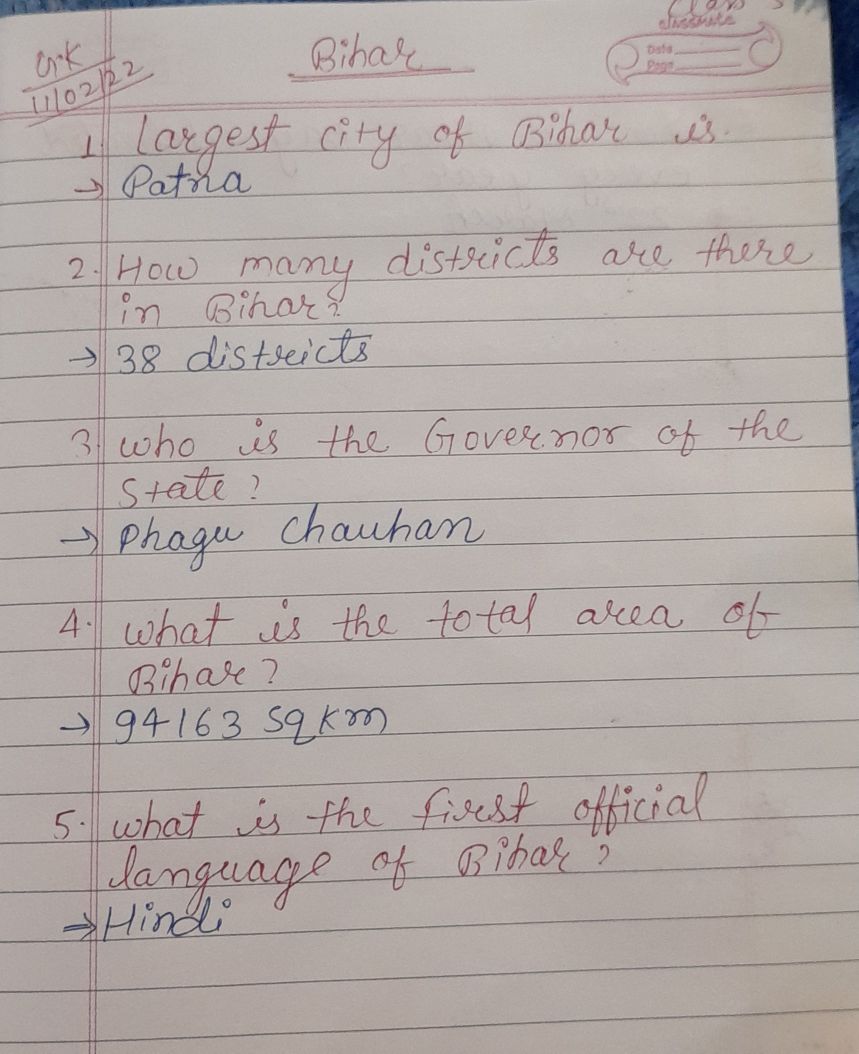 Class 3
G.K
Bihar
classmate
Date
Page
11/02/22
1. Largest city of Bihar is.
→ Patna
2. How many districts are there
in Bihar?
→ 38 districts
3. who is the Governor of the
State?
→ Phagu Chauhan
4. what is the total area of
Bihar?
→ 94163 sqkm
5. what is the first official
language of Bihar?
⇒ Hindi